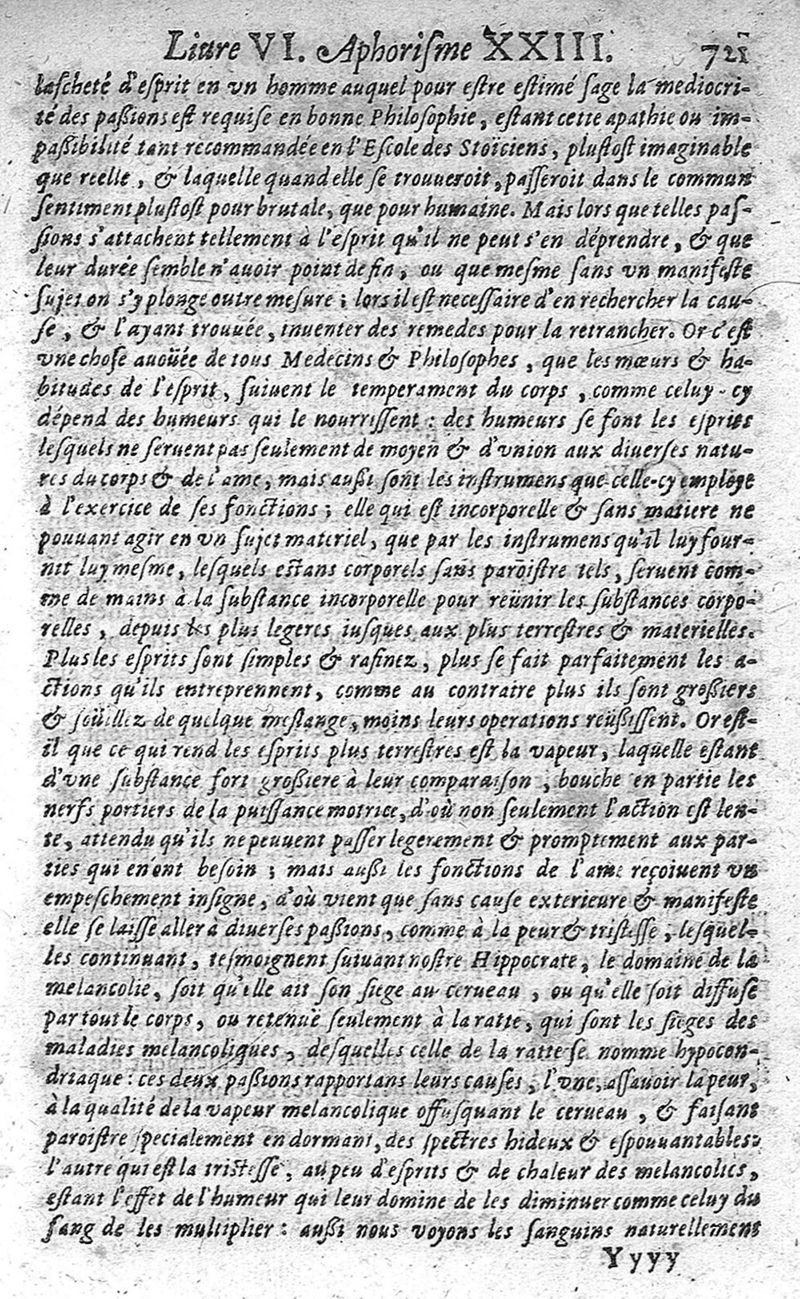 Liure VI. Aphoriſme XXIII. 721
laſcheté d'eſprit en vn homme auquel pour eſtre eſtimé ſage la mediocri-
té des paßions eſt requiſe en bonne Philoſophie, eſtant cette apathie ou im-
paßibilité tant recommandée en l'Eſcole des Stoïciens, pluſtoſt imaginable
que reelle, & laquelle quand elle ſe trouueroit, paſſeroit dans le commun
ſentiment pluſtoſt pour brutale, que pour humaine. Mais lors que telles paſ-
ſions s'attachent tellement à l'eſprit qu'il ne peut s'en déprendre, & que
leur durée ſemble n'auoir point de fin, ou que meſme ſans vn manifeſte
ſujet on s'y plonge outre meſure; lors il eſt neceſſaire d'en rechercher la cau-
ſe, & l'ayant trouuée, inuenter des remedes pour la retrancher. Or c'eſt
vne choſe auoüée de tous Medecins & Philoſophes, que les mœurs & ha-
bitudes de l'eſprit, ſuiuent le temperament du corps, comme celuy-cy
dépend des humeurs qui le nourriſſent: des humeurs ſe font les eſprits
leſquels ne ſeruent pas ſeulement de moyen & d'vnion aux diuerſes natu-
res du corps & de l'ame, mais außi ſont les inſtrumens que celle-cy employe
à l'exercice de ſes fonctions; elle qui eſt incorporelle & ſans matiere ne
pouuant agir en vn ſujet materiel, que par les inſtrumens qu'il luy four-
nit luy meſme, leſquels eſtans corporels ſans paroiſtre tels, ſeruent com-
me de mains à la ſubſtance incorporelle pour reünir les ſubſtances corpo-
relles, depuis les plus legeres iuſques aux plus terreſtres & materielles.
Plus les eſprits ſont ſimples & rafinez, plus ſe fait parfaitement les a-
ctions qu'ils entreprennent, comme au contraire plus ils ſont großiers
& ſoüillez de quelque meſlange, moins leurs operations reüßiſſent. Or eſt-
il que ce qui rend les eſprits plus terreſtres eſt la vapeur, laquelle eſtant
d'vne ſubſtance fort großiere à leur comparaiſon, bouche en partie les
nerfs portiers de la puiſſance motrice, d'où non ſeulement l'action eſt len-
te, attendu qu'ils ne peuuent paſſer legerement & promptement aux par-
ties qui en ont beſoin; mais außi les fonctions de l'ame reçoiuent vn
empeſchement inſigne, d'où vient que ſans cauſe exterieure & manifeſte
elle ſe laiſſe aller à diuerſes paßions, comme à la peur & triſteſſe, leſquel-
les continuant, teſmoignent ſuiuant noſtre Hippocrate, le domaine de la
melancolie, ſoit qu'elle ait ſon ſiege au cerueau, ou qu'elle ſoit diffuſe
par tout le corps, ou retenuë ſeulement à la ratte, qui ſont les ſieges des
maladies melancoliques, deſquelles celle de la ratte ſe nomme hypocon-
driaque: ces deux paßions rapportans leurs cauſes, l'vne, aſſauoir la peur,
à la qualité de la vapeur melancolique offuſquant le cerueau, & faiſant
paroiſtre ſpecialement en dormant, des ſpectres hideux & eſpouuantables:
l'autre qui eſt la triſteſſe, au peu d'eſprits & de chaleur des melancolics,
eſtant l'effet de l'humeur qui leur domine de les diminuer comme celuy du
ſang de les multiplier: außi nous voyons les ſanguins naturellement
Yyyy